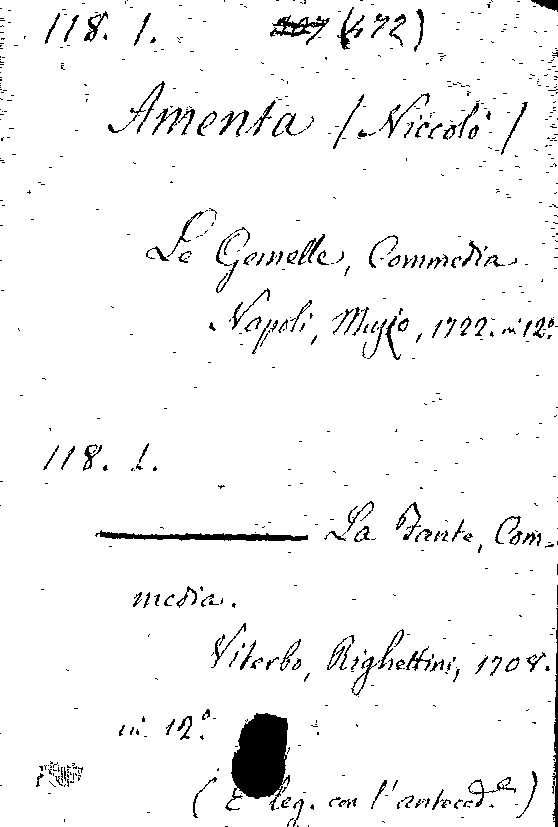 118. 1. (472)
Amenta (Niccolò)
Le Gemelle, Commedia
Napoli, Muzio, 1722. in 12°.
118. 1.
La Fante, Com-
media.
Viterbo, Righettini, 1708.
in 12°.
(È leg. con l'anteced.e)